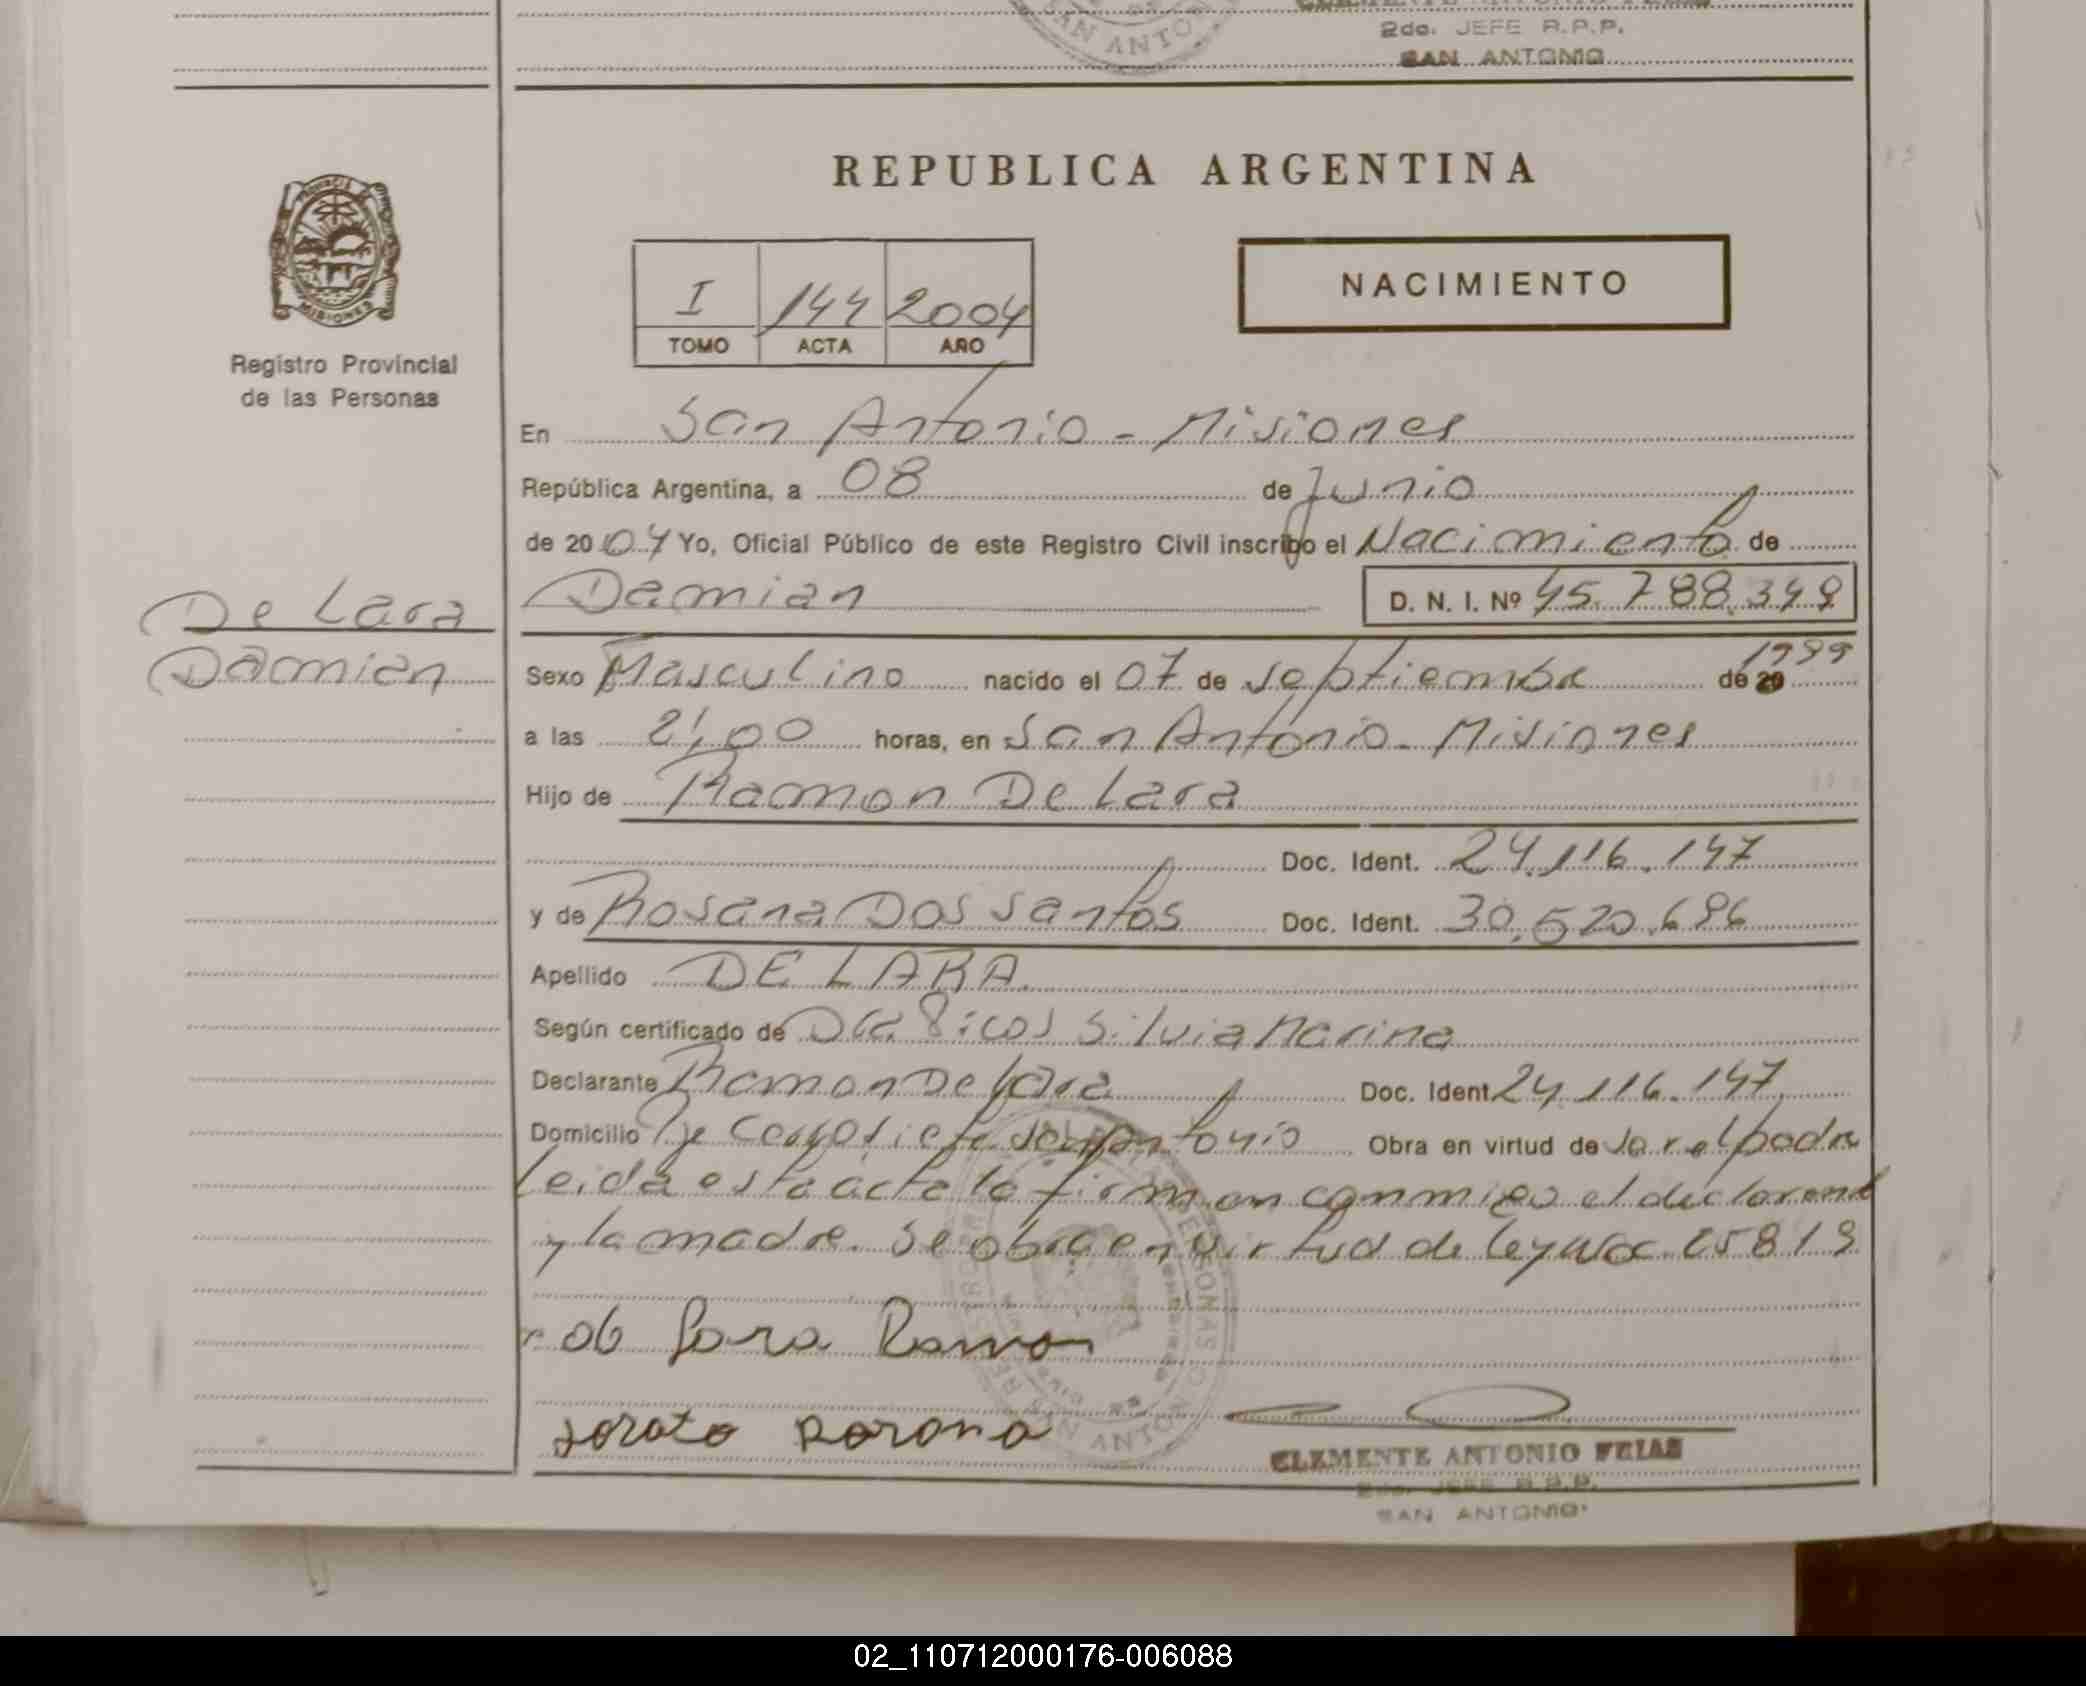 SAN ANTONIO
2do. JEFE R.P.P.
SAN ANTONIO
PROVINCIA
MISIONES
Registro Provincial
de las Personas
REPUBLICA ARGENTINA
I 144 2004
TOMO ACTA AÑO
NACIMIENTO
En San Antonio - Misiones
República Argentina, a 08 de Junio
de 2004 Yo, Oficial Público de este Registro Civil inscribo el Nacimiento de
De Lara
Damian
Damian D. N. I. Nº 45.788.349
Sexo Masculino nacido el 07 de Septiembre de 1999
a las 21,00 horas, en San Antonio - Misiones
Hijo de Ramon De Lara
Doc. Ident. 24.116.147
y de Rosana Dos Santos Doc. Ident. 30.520.696
Apellido DE LARA
Según certificado de Dra Silvia Marina
Declarante Ramon De Lara Doc. Ident 24.116.147
Domicilio San Antonio Obra en virtud de ser el padre
Leida esta acta la firman conmigo el declarante
y la madre. Se obra en virtud de ley 25819
Lara Ramon
CLEMENTE ANTONIO FRIAS
2do. JEFE R.P.P.
SAN ANTONIO
02_110712000176-006088